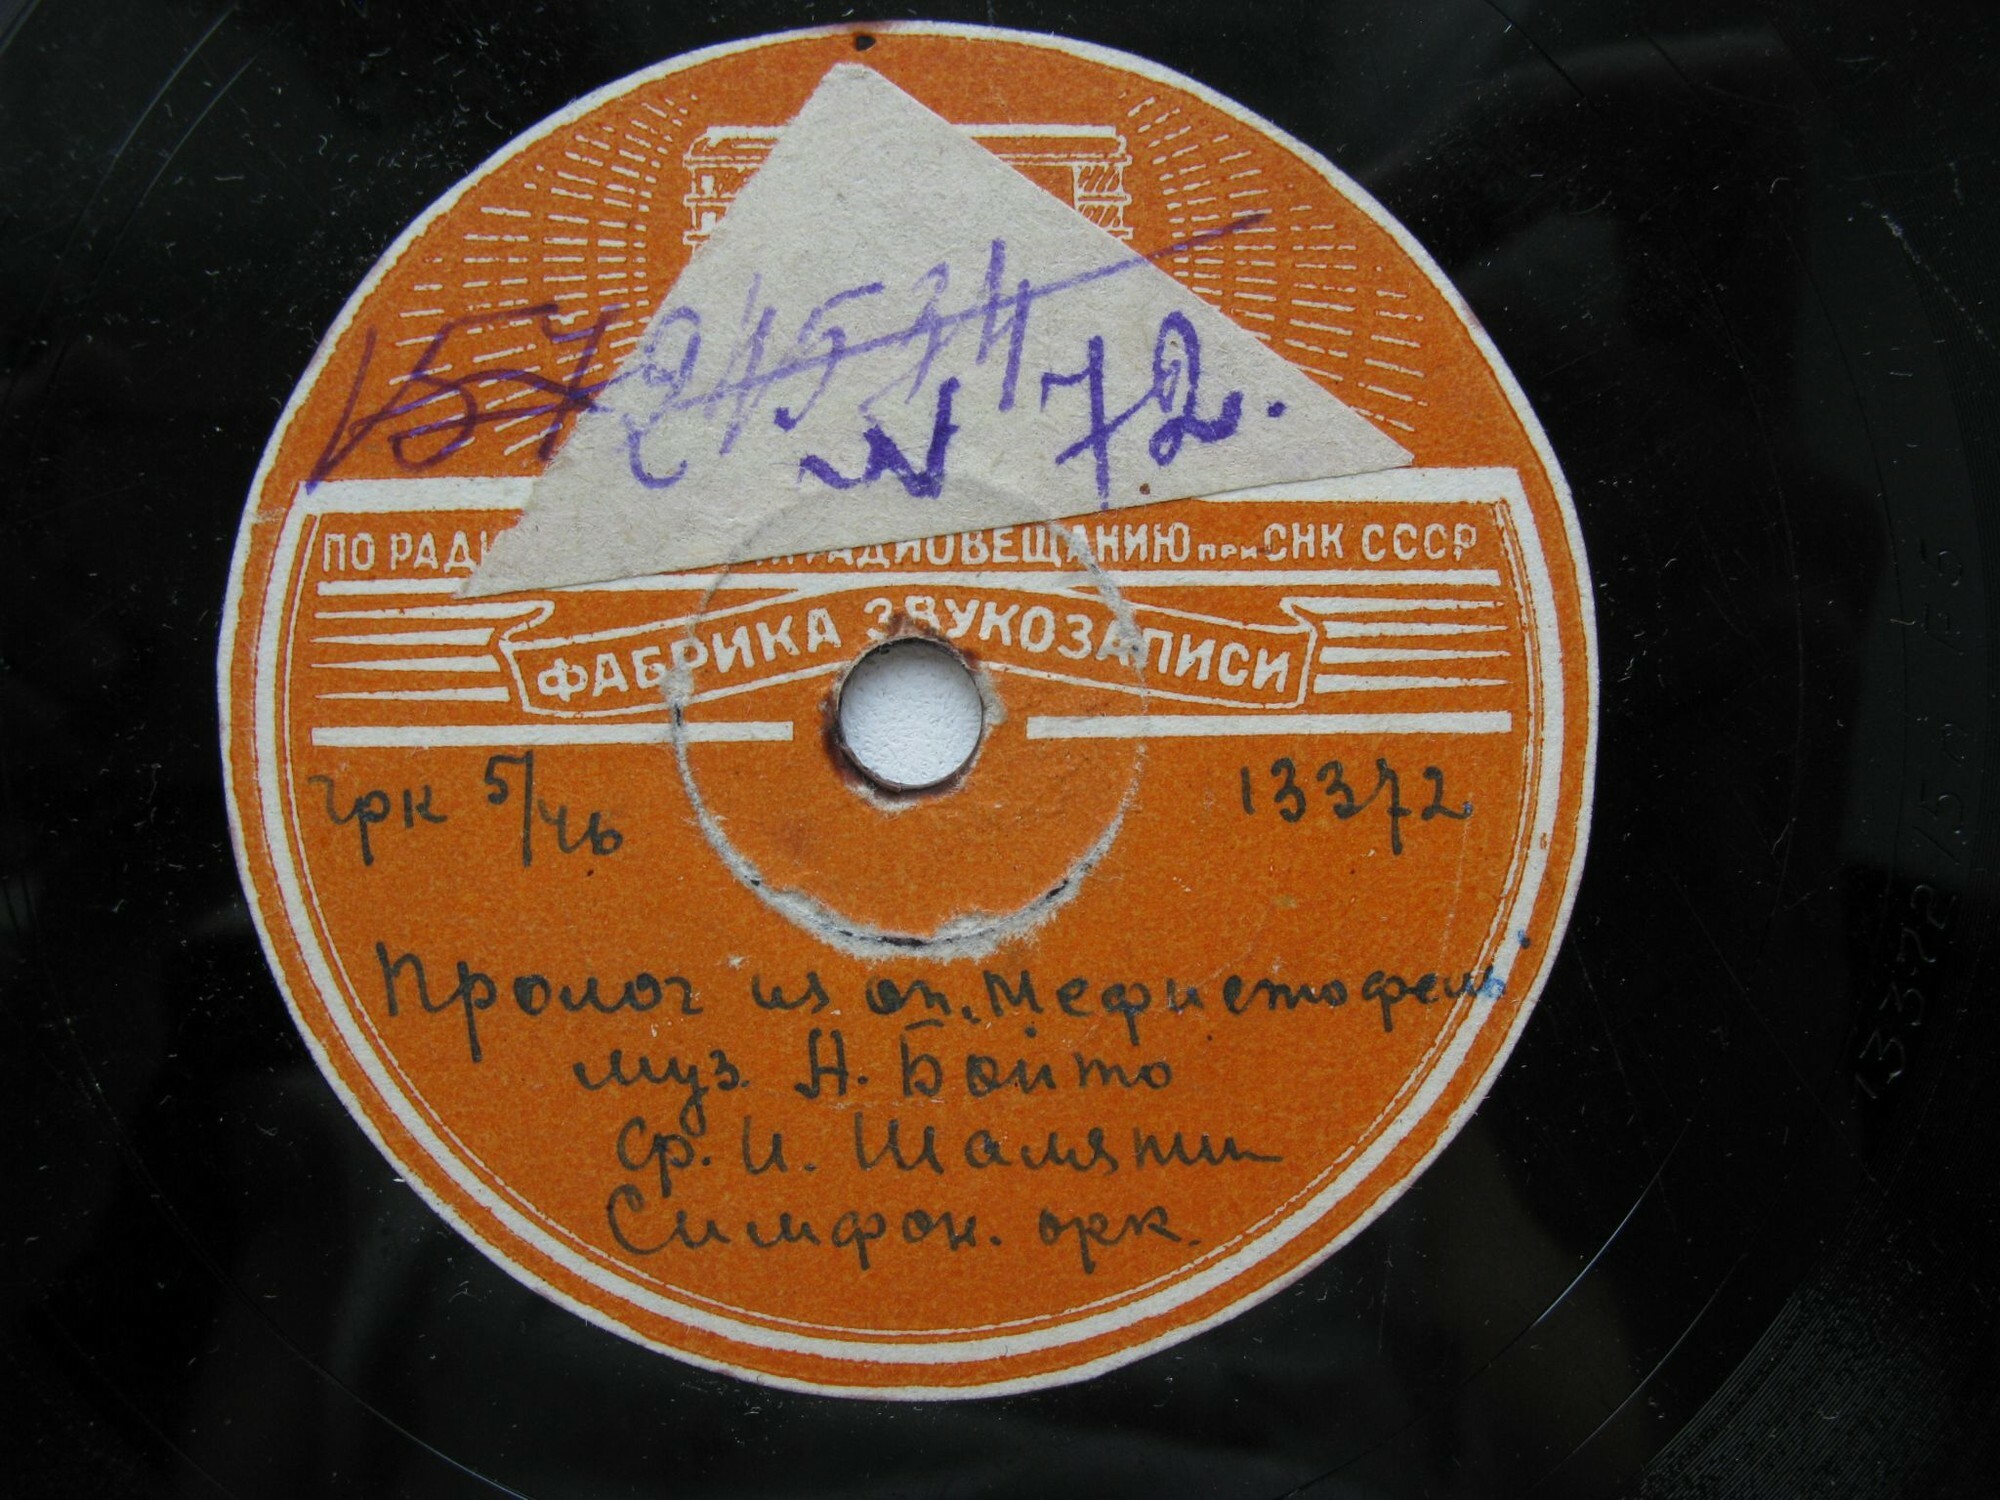 N 72.
ПО РАДИ РАДИОВЕЩАНИЮ при СНК СССР
ФАБРИКА ЗВУКОЗАПИСИ
грк 5/46 13372
Пролог из оп. Мефистофель
муз. А. Бойто
Ф. И. Шаляпин
Симфон. орк.
13372